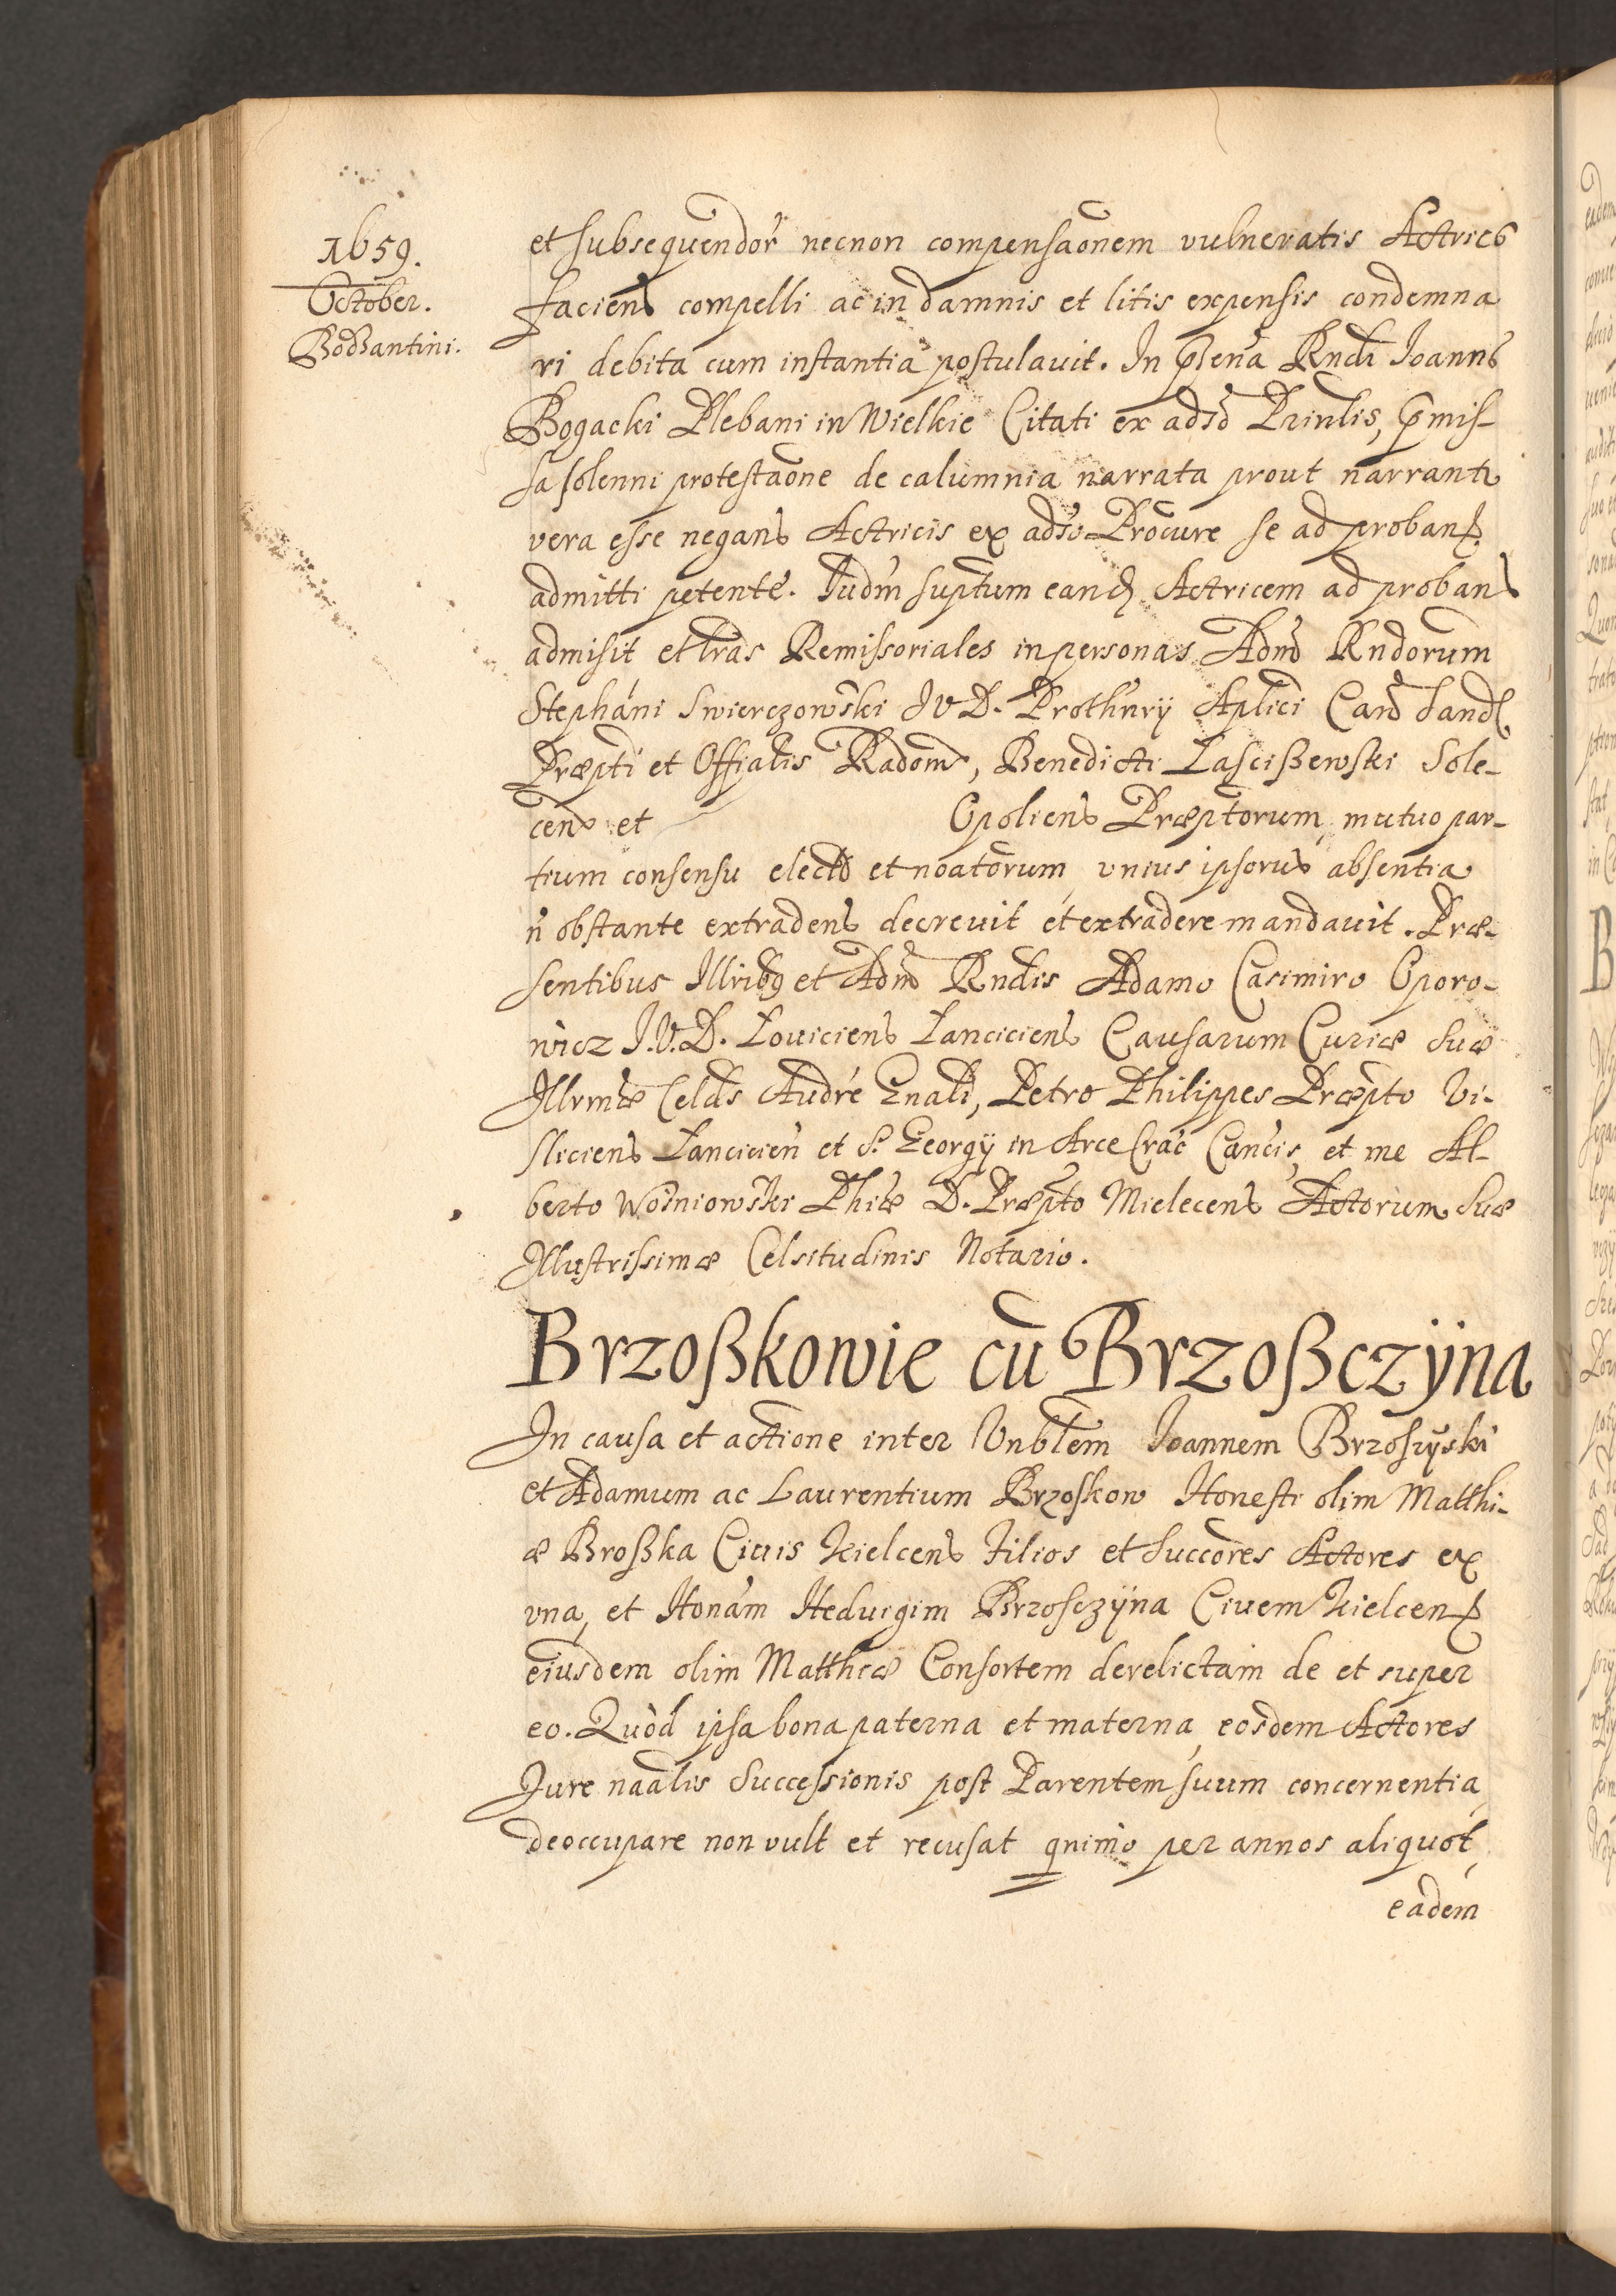 1659.
October.
Bodzantini.
et subsequendor̃ necnon compensaõnem vulneratis Actrici
faciens compelli ac in damnis et litis expensis condemna
ri debita cum instantia postulauit. In p̃sẽna Rñdi Joannis
Bogacki Plebani in Wielkie Citati ex adṽso Prĩnlis, p̃mis-
sa solenni protestaõne de calumnia narrata prout narrantr
vera esse negans Actricis ex adṽso Procũre se ad proband
admitti petente. Iudm̃ suptũm eand Actricem ad proband
admisit et lr̃as Remissoriales in personas Adm̃ Rndorum
Stephani Swierczowski I V D. Prothñrij Aplici Can̄o Sand
Præpti et Offialis Radom, Benedicti Lasciszewski Sole-
cen et Opoliens Præptorum, mutuo par-
tium consensu electo et noatorum, vnius ipsorum absentia
ñ obstante extradens decreuit et extradere mandauit. Præ-
sentibus Illribg et Adm̃ Rndis Adamo Casimiro Oporo-
wicz J.V.D. Louiciens Lanciciens Causarum Curiæ Suæ
Illrmæ Celdis Audre Gnali, Petro Philippes Præpto Vi-
sliciens Lancicien̄ et S. Georgij in Arce Crac Cancis, et me Al-
berto Wosniowski Phiæ D. Præpto Mielecens Actorum Suæ
Illustrissimæ Celsitudinis Notario.
Brzoßkowie cũ Brzoßczÿna
In causa et actione inter Vnblem Joannem Brzoszÿski
et Adamum ac Laurentium Brzoskow Honesti olim Matthi-
æ Broßka Ciuis Kielcens Filios et Succores Actores ex
vna, et Honam Heduigim Brzosczÿna Ciuem Kielcens
eiusdem olim Matthiæ Consortem derelictam de et super
eo. Quòd ipsa bona paterna et materna, eosdem Actores
Jure naalis Successionis post Parentem suum concernentia
deoccupare non vult et recusat qnimo per annos aliquot
eadem